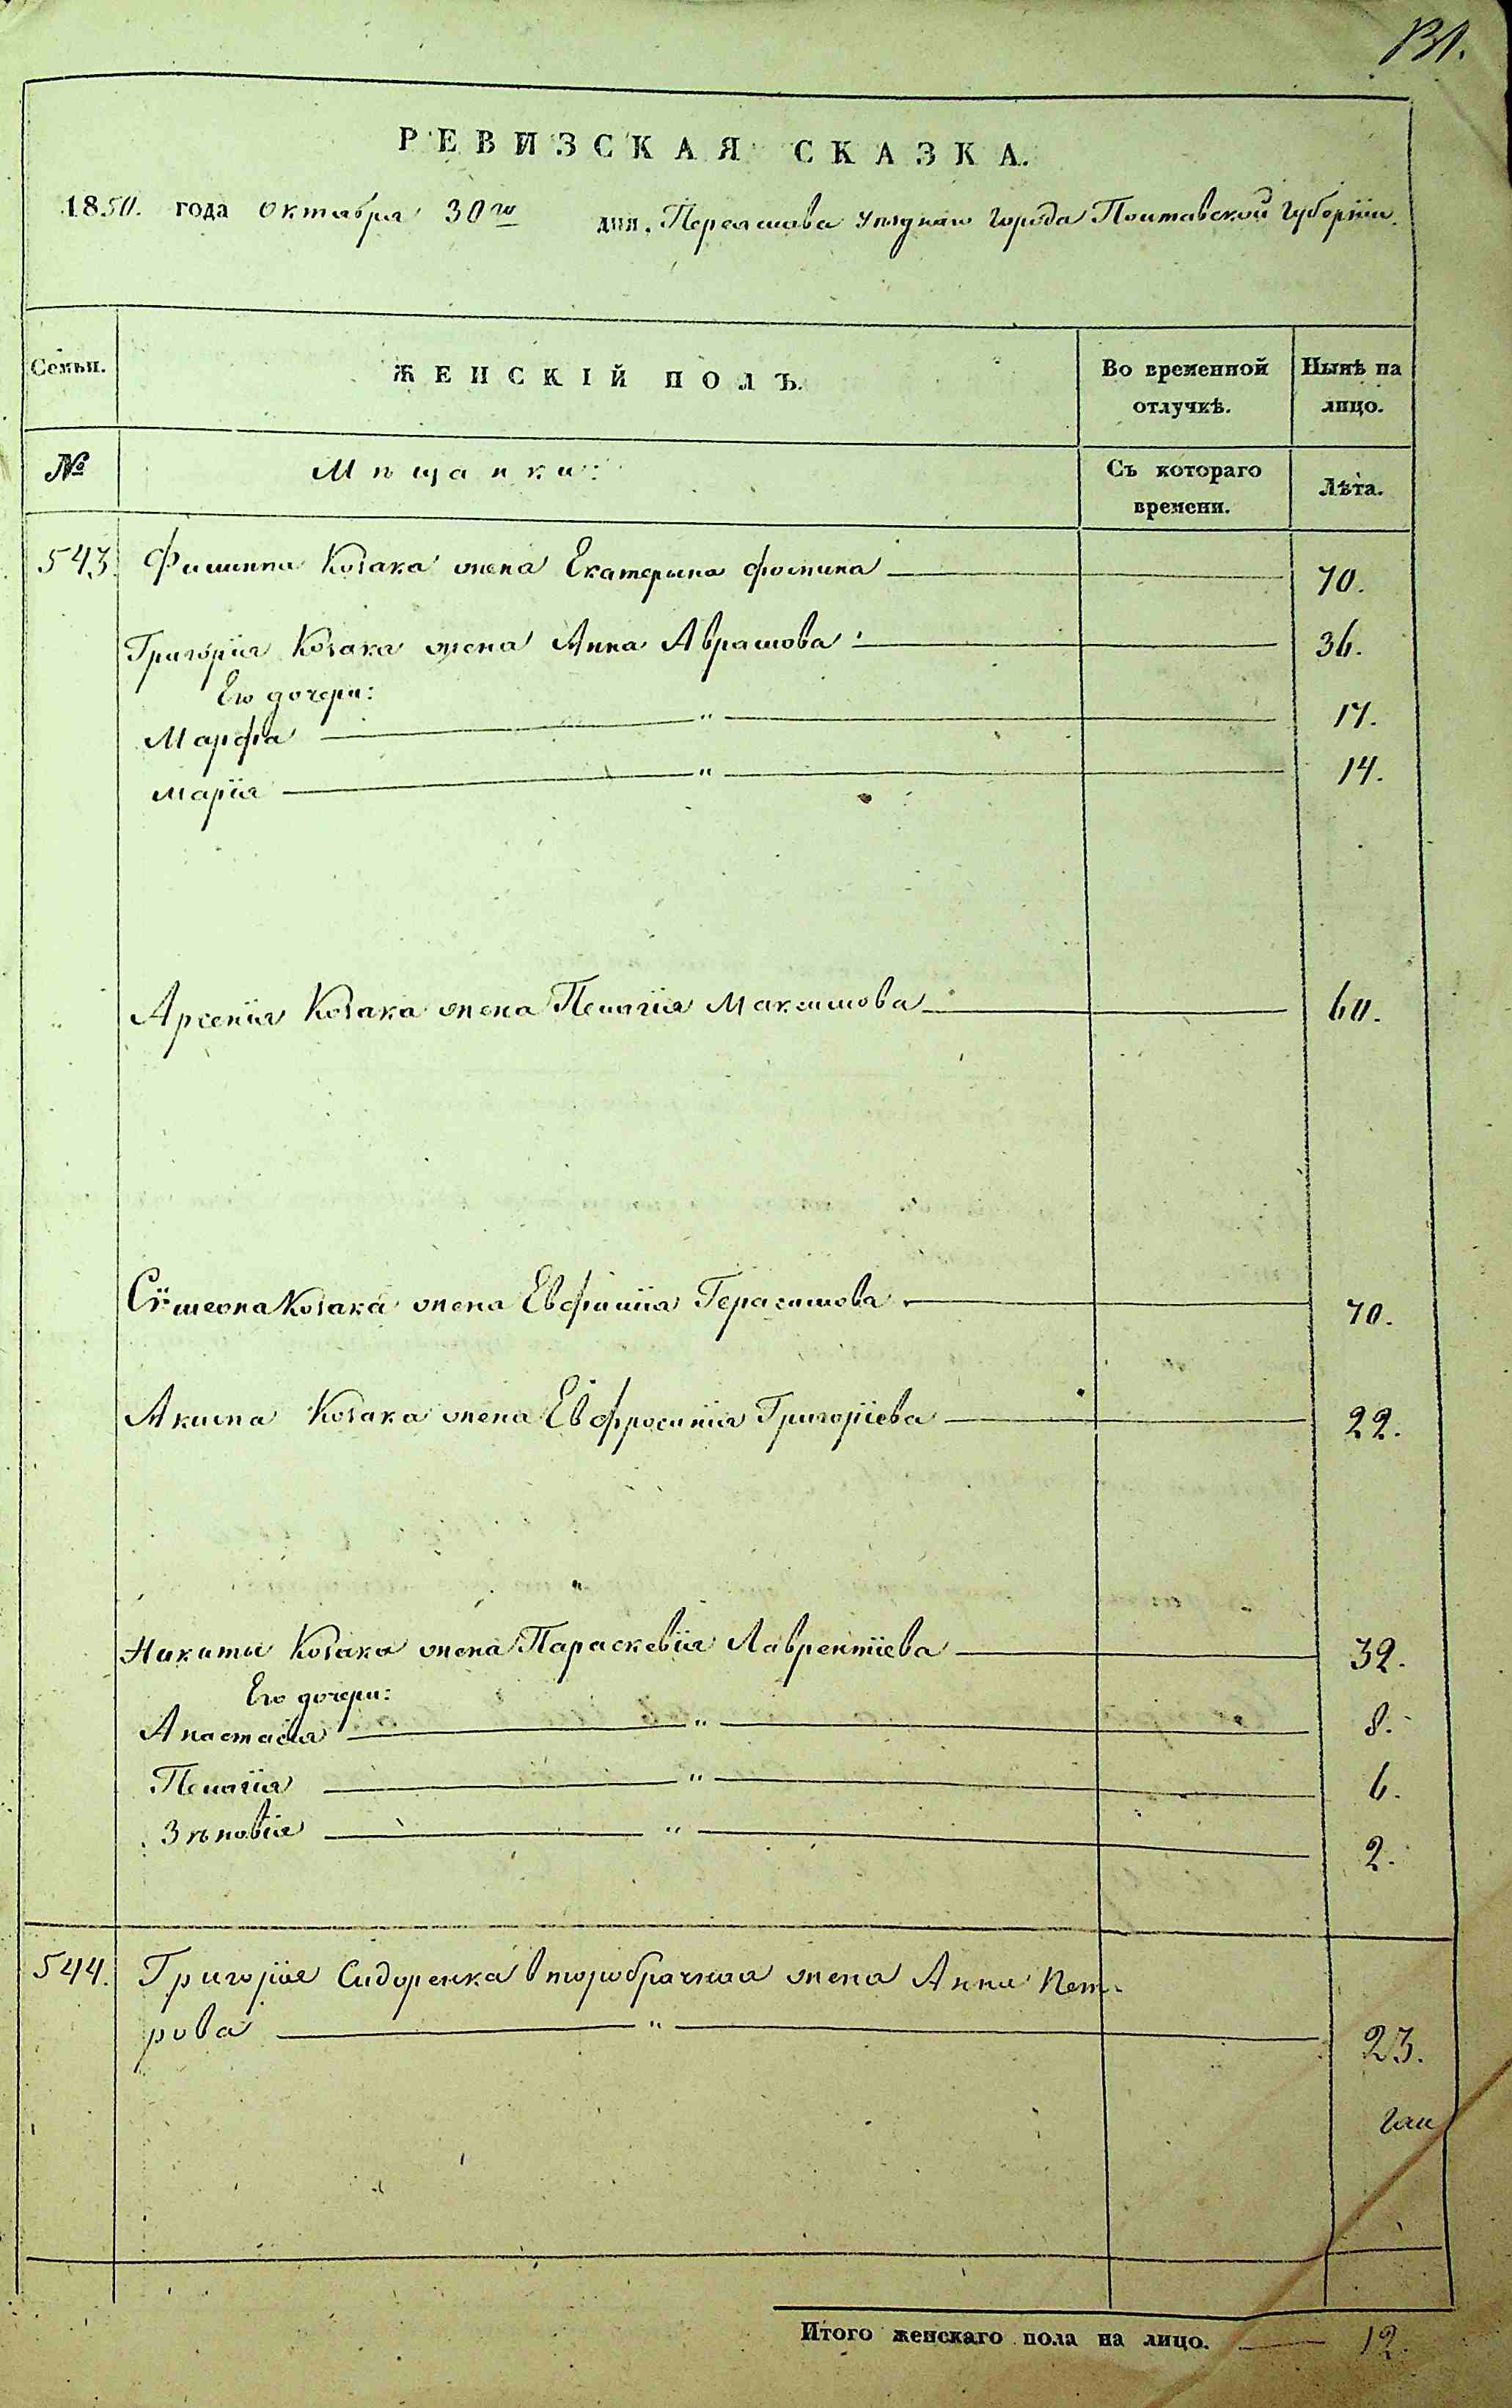 131.
РЕВИЗСКАЯ СКАЗКА.
1850. года октября 30го дня. Переяслова уѣзднаго города Полтавской губерніи.
Семьи. ЖЕНСКІЙ ПОЛЪ. Во временной отлучкѣ. Нынѣ на лицо.
№ Мѣщанки: Съ котораго времени. Лѣта.
543. Филиппа Козака жена Екатерина Фомина 70.
Григорія Козака жена Анна Аврамова 36.
Его дочери:
Марфа " 17.
Марія " 14.
Арсенія Козака жена Пелагія Максимова 60.
Сѵмеона Козака жена Евфимія Герасимова 70.
Акима Козака жена Евфросинія Григоріева 22.
Никиты Козака жена Параскевія Лаврентіева 32.
Его дочери:
Анастасія " 8.
Пелагія " 6.
Зѣновія " 2.
544. Григорія Сидоренка второбрачная жена Анна Пет-
рова " 23.
Итого женскаго пола на лицо. 12.